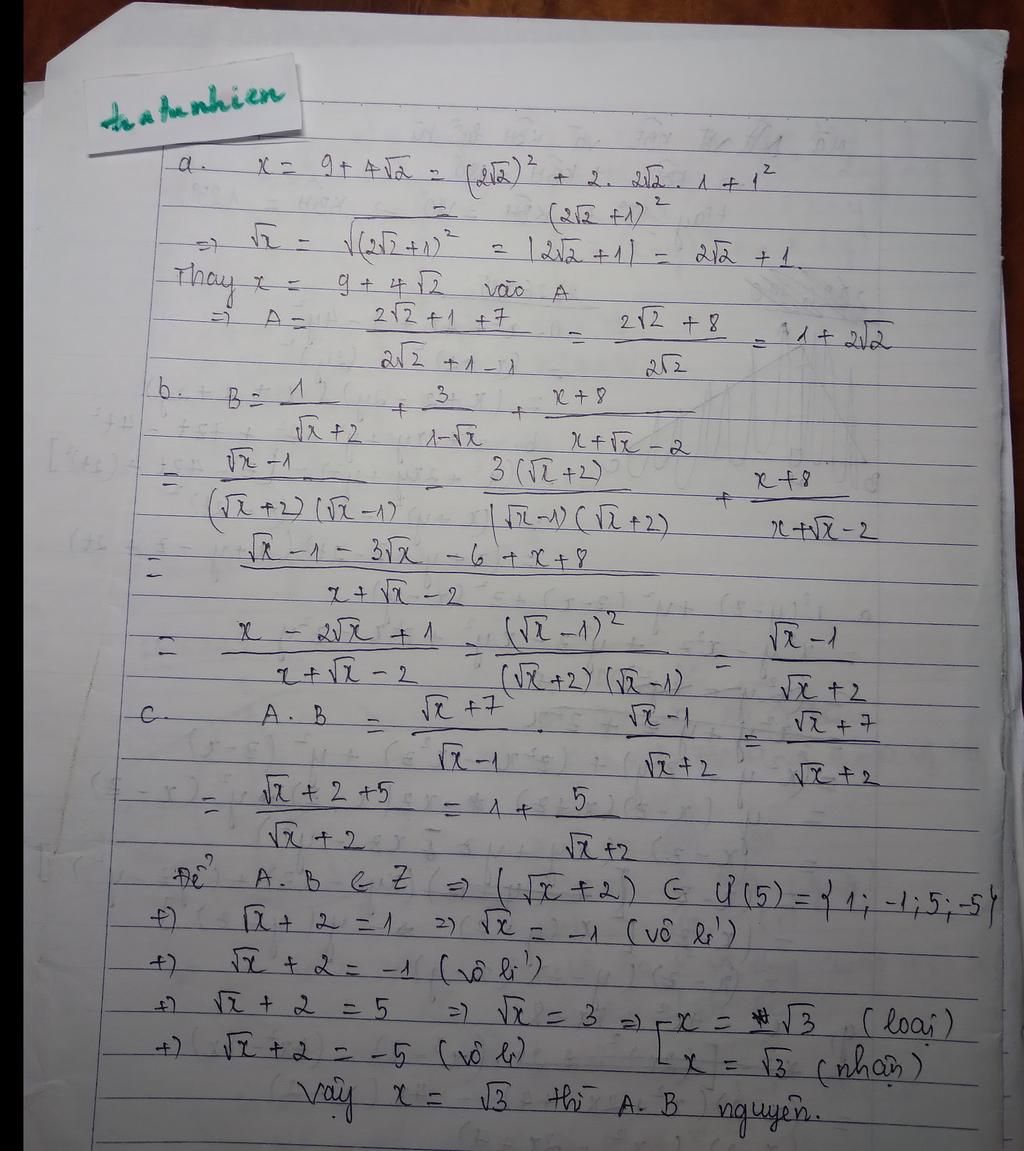 hatunhien
a. x = 9 + 4√2 = (2√2)² + 2. 2√2 . 1 + 1²
= (2√2 + 1)²
=> √x = √(2√2 + 1)² = |2√2 + 1| = 2√2 + 1.
Thay x = 9 + 4√2 vào A
=> A = (2√2 + 1 + 7)/(2√2 + 1 - 1) = (2√2 + 8)/(2√2) = 1 + 2√2
b. B = 1/(√x + 2) + 3/(1 - √x) + (x + 8)/(x + √x - 2)
= (√x - 1)/((√x + 2)(√x - 1)) - 3(√x + 2)/((√x - 1)(√x + 2)) + (x + 8)/(x + √x - 2)
= (√x - 1 - 3√x - 6 + x + 8)/(x + √x - 2)
= (x - 2√x + 1)/(x + √x - 2) = (√x - 1)²/((√x + 2)(√x - 1)) = (√x - 1)/(√x + 2)
c. A . B = (√x + 7)/(√x - 1) . (√x - 1)/(√x + 2) = (√x + 7)/(√x + 2)
= (√x + 2 + 5)/(√x + 2) = 1 + 5/(√x + 2)
Để A. B ∈ Z => (√x + 2) ∈ Ư(5) = {1; -1; 5; -5}
+) √x + 2 = 1 => √x = -1 (vô lí)
+) √x + 2 = -1 (vô lí)
+) √x + 2 = 5 => √x = 3 => [ x = -√3 (loại)
+) √x + 2 = -5 (vô lí) x = √3 (nhận)
Vậy x = √3 thì A. B nguyên.